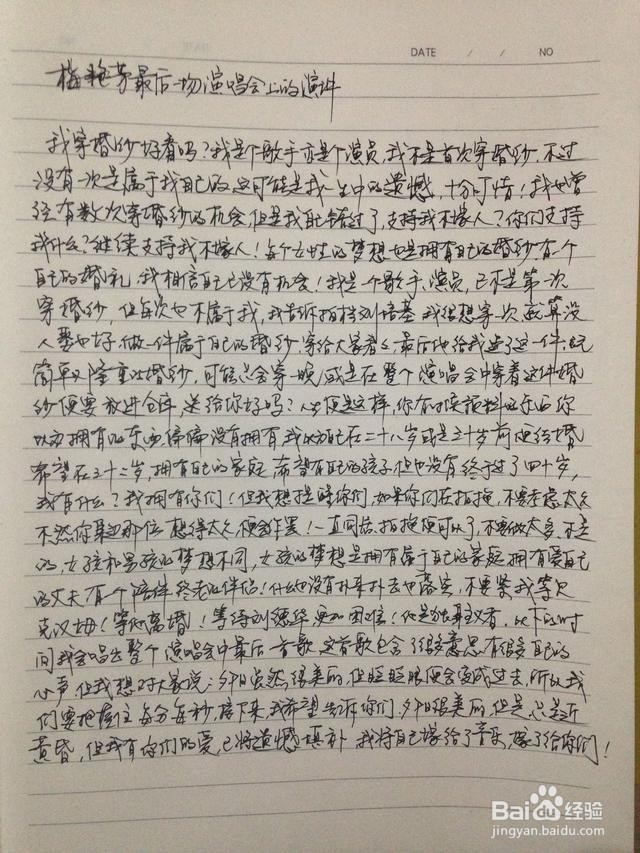 DATE / / NO
梅艳芳最后一场演唱会上的演讲
我穿婚纱好看吗？我是个歌手亦是个演员，我不是首次穿婚纱，不过
没有一次是属于我自己的，这可能是我一生中的遗憾，十分可惜！我曾
经有数次穿婚纱的机会，但是我自己错过了，支持我不嫁人？你们支持
我什么？继续支持我不嫁人！每个女性的梦想也是拥有自己的婚纱，有个
自己的婚礼，我相信自己已没有机会！我是个歌手、演员，已不是第一次
穿婚纱，但每次也不属于我，我告诉拍档刘培基，我很想穿一次，就算没
人娶也好，做一件属于自己的婚纱，穿给大家看，最后他给我造了这一件既
简单又隆重的婚纱，可能只会穿一晚，或是在整个演唱会中穿着这件婚
纱便要放进仓库，送给你好吗？人生便是这样，你有时预料的东西你
以为拥有的东西，偏偏没有拥有，我以为自己在二十八岁或是三十岁前便结婚
希望在三十二岁，拥有自己的家庭，希望有自己的孩子，但也没有，终于过了四十岁，
我有什么？我拥有你们！但我想提醒你们，如果你们在拍拖，不要考虑太久
不然你身边那位想得太久，便会作罢！一直同居、拍拖便可以了，不要做太多，不是
的，女孩和男孩的梦想不同，女孩的梦想是拥有属于自己的家庭，拥有爱自己
的丈夫，有个陪伴终老的伴侣！什么也没有，扑来扑去也落空，不要紧，我等
克汉姆！等他离婚！等待刘德华，更加困难！他是独身主义者，以下的时
间我会唱出整个演唱会中最后一首歌，这首歌包含了很多意思，有很多自己的
心声，但我想对大家说：夕阳虽然很美丽，但眨眨眼便会变成过去，所以我
们要把握住每分每秒，接下来，我希望告诉你们，夕阳很美丽，但是，只是近
黄昏，但我有你们的爱，已将遗憾填补，我将自己嫁给了音乐，嫁了给你们！
Baidu经验
jingyan.baidu.com